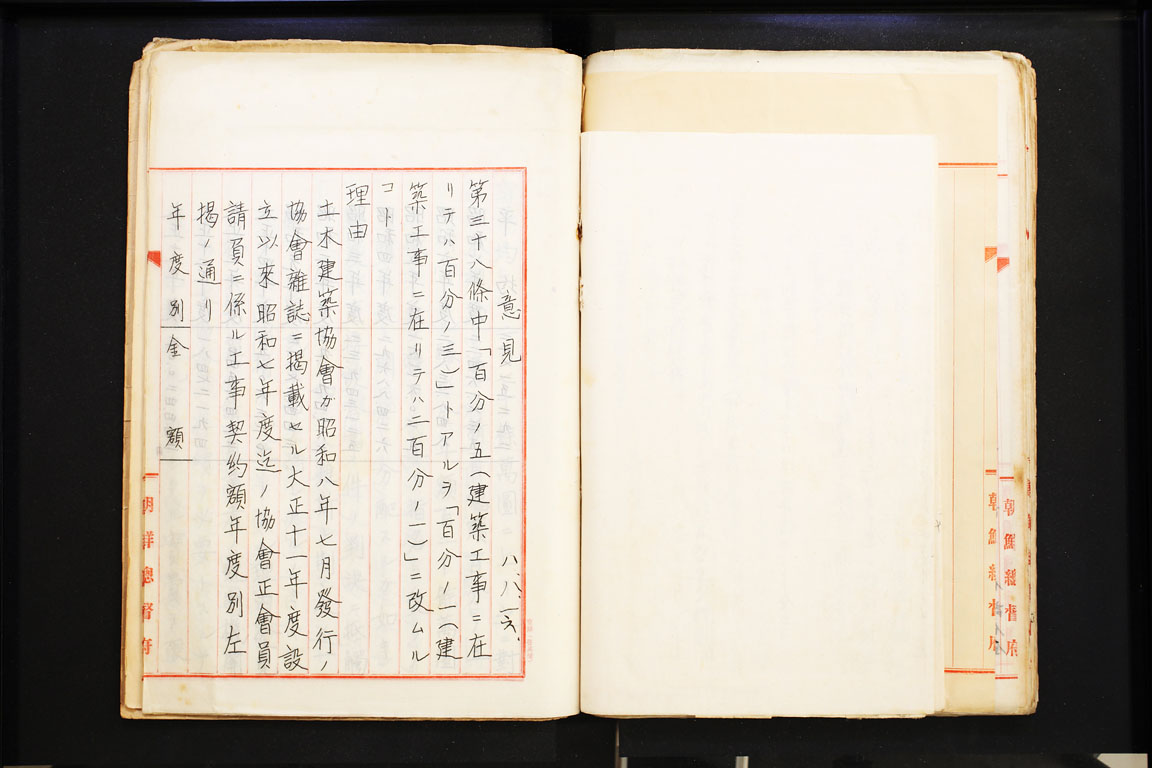 意見 八、八、一六、
第三十八條中「百分ノ五(建築工事ニ在
リテハ百分ノ三)」トアルヲ「百分ノ一(建
築工事ニ在リテハ二百分ノ一)」ニ改ムル
コト
理由
土木建築協會ガ昭和八年七月發行ノ
協會雜誌ニ揭載セル大正十一年度設
立以來昭和七年度迄ノ協會正會員
請負ニ係ル工事契約額年度別左
揭ノ通リ
年度別 金額
朝鮮總督府
朝鮮總督府
朝鮮總督府